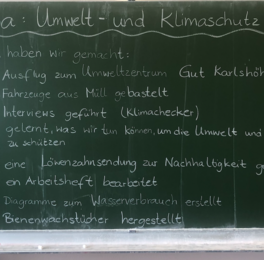 a: Umwelt- und Klimaschutz
haben wir gemacht:
Ausflug zum Umweltzentrum Gut Karlshöh
Fahrzeuge aus Müll gebastelt
Interviews geführt (Klimachecker)
gelernt, was wir tun können, um die Umwelt und
zu schützen
ene Löwenzahnsendung zur Nachhaltigkeit g
en Arbeitsheft bearbeitet
Diagramme zum Wasserverbrauch erstellt
Bienenwachstücher hergestellt